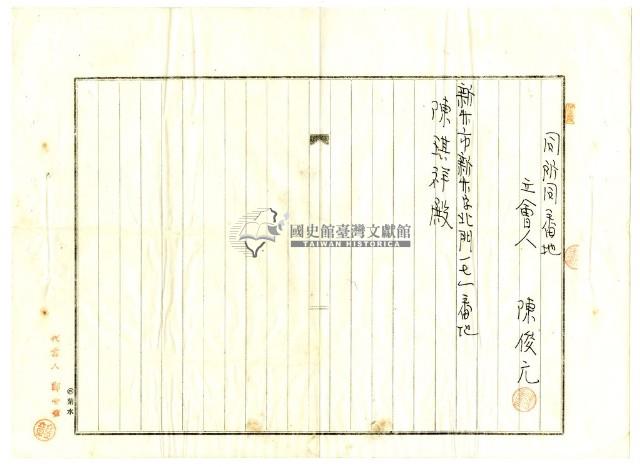 同所同番地
立會人 陳俊元
新竹市新竹字北門一七一番地
陳琪祥殿
國史館臺灣文獻館
TAIWAN HISTORICA
代書人